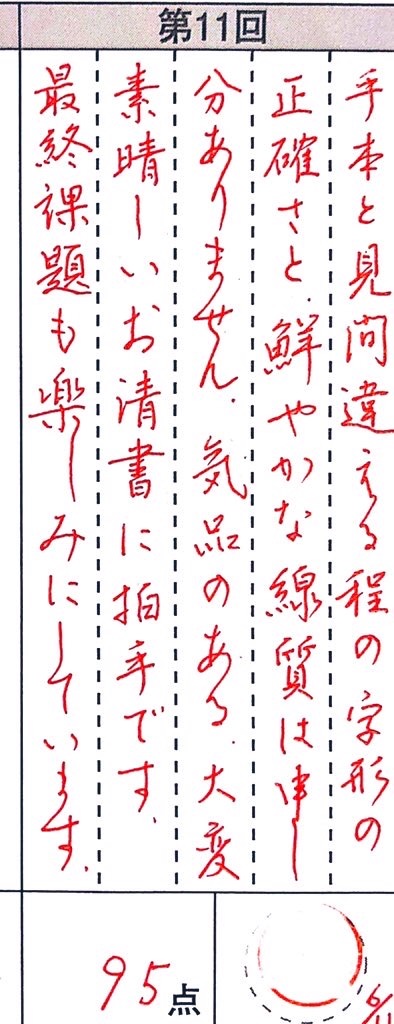 第11回
手本と見間違える程の字形の
正確さと、鮮やかな線質は申し
分ありません。気品のある、大変
素晴しいお清書に拍手です。
最終課題も楽しみにしています。
95点